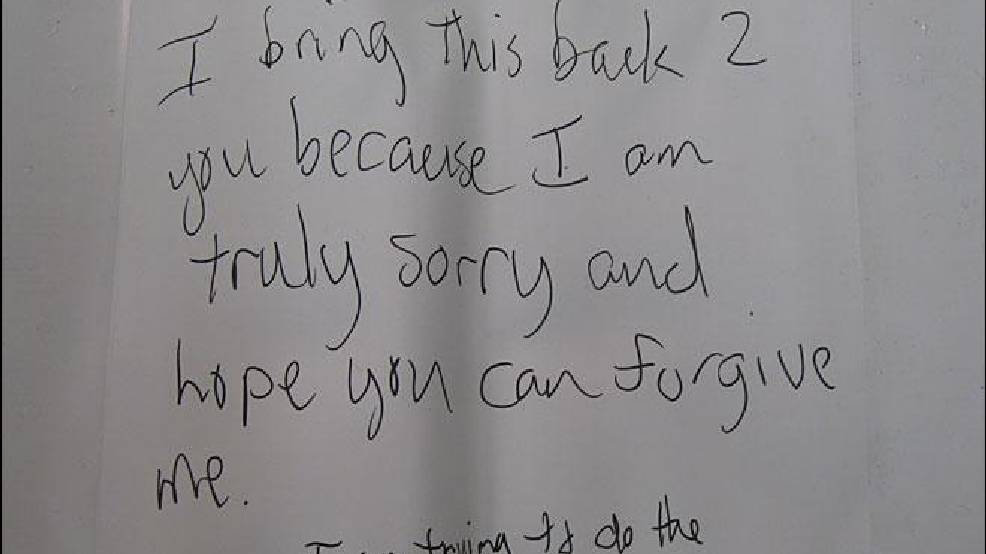 I bring this back 2
you because I am
truly sorry and
hope you can forgive
me.
I am trying to do the